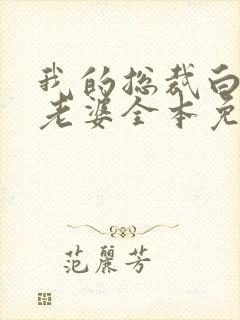 我的总裁白
老婆全本免
范丽芳